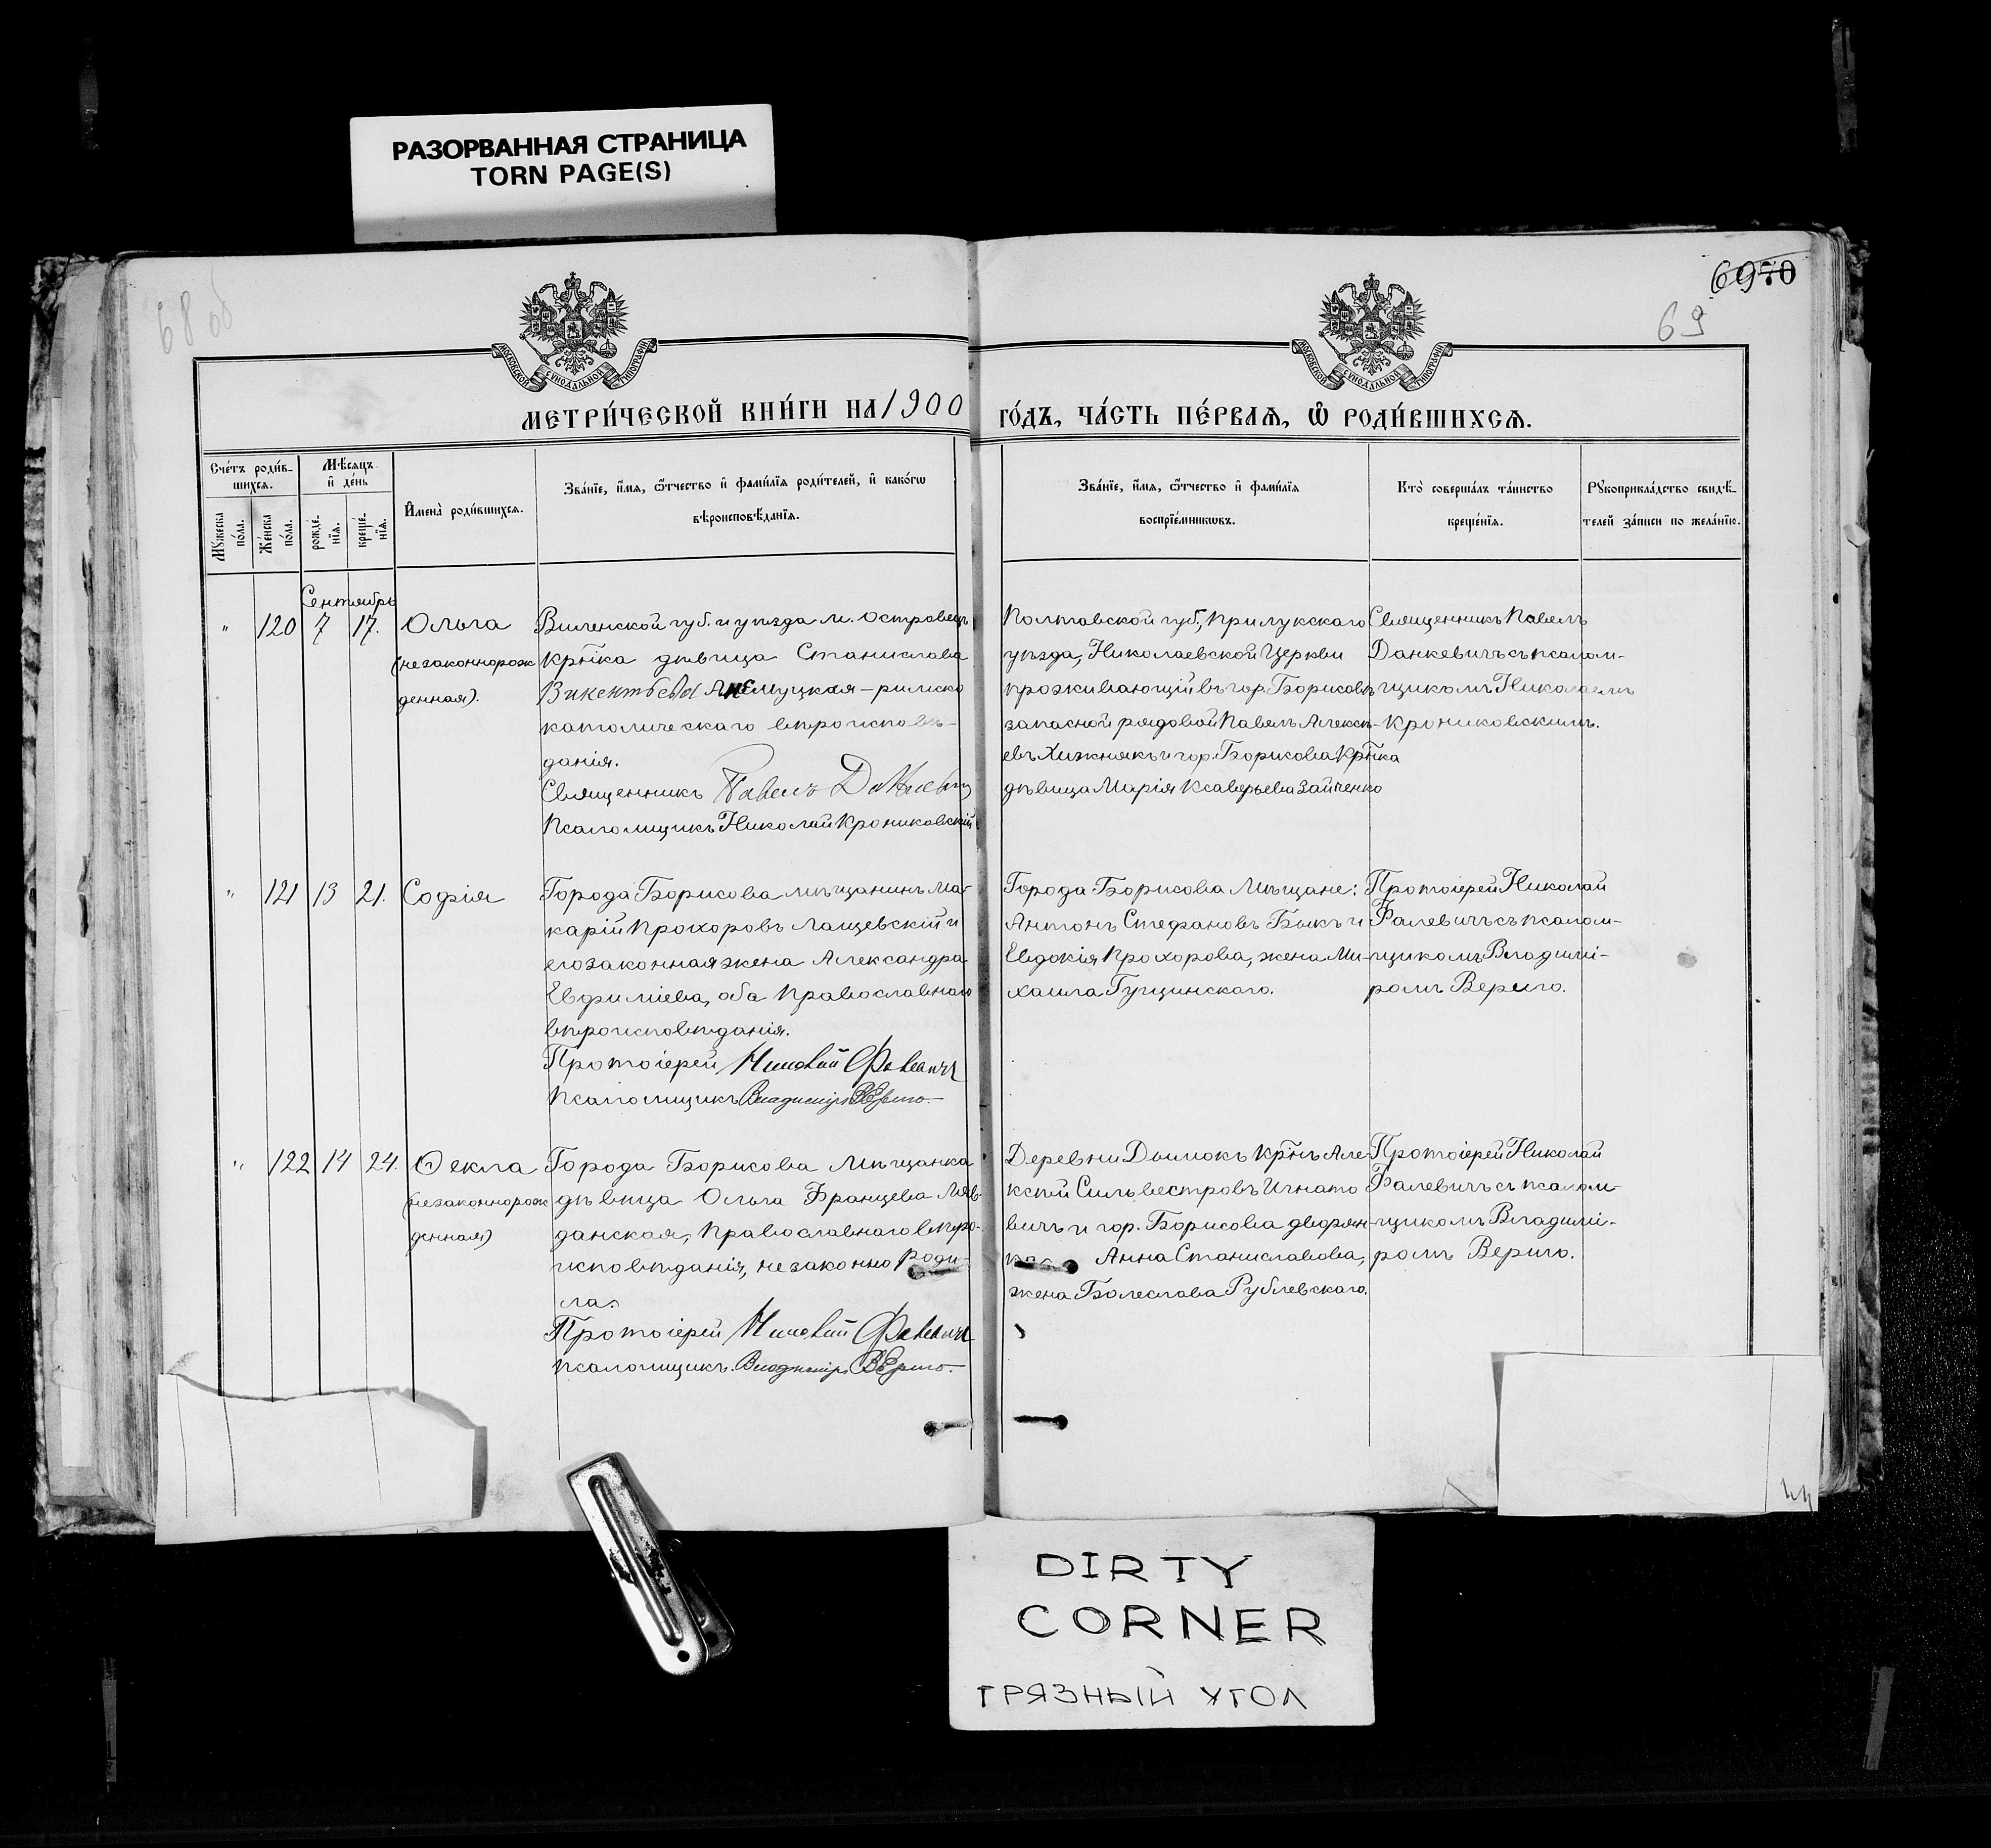 РАЗОРВАННАЯ СТРАНИЦА
TORN PAGE(S)
68 об
6970
69
МОСКОВСКОЙ СѴНОДАЛЬНОЙ ТИПОГРАФІИ
МОСКОВСКОЙ СѴНОДАЛЬНОЙ ТИПОГРАФІИ
МЕТРИ́ЧЕСКОЙ КНИ́ГИ НА 1900 ГО́ДЪ, ЧА́СТЬ ПЕ́РВАѦ, Ѽ РОДИ́ВШИХСѦ.
Сче́тъ роди́в-
шихсѧ.
Мꙋ́жеска
по́ла.
Же́нска
по́ла.
Мѣ́сяцъ
и҆ де́нь
рожде́-
нїѧ.
креще́-
нїѧ.
И҆мена̀ роди́вшихсѧ.
Зва́нїе, и҆́мѧ, ѻ҆́тчество и҆ фами́лїѧ роди́телей, и҆ како́гѡ
вѣроисповѣ́данїѧ.
Зва́нїе, и҆́мѧ, ѻ҆́тчество и҆ фами́лїѧ
воспрїе́мникѡвъ.
Кто̀ соверша́лъ та́инство
креще́нїѧ.
Рꙋкоприкла́дство свидѣ́-
телей за́писи по жела́нїю.
Сентябрь
" 120 7 17. Ольга
(незаконнорож
денная).
Виленской губ. и уѣзда м. Островецъ
кр̃нка дѣвица Станислава
Викентьева Анемуцкая – римско
католическаго вѣроисповѣ-
данія.
Священникъ Павелъ Данкевичъ
Псаломщикъ Николай Крониковскій
Полтавской губ., Прилукскаго
уѣзда, Николаевской Церкви
проживающій въ гор. Борисовѣ
запасной рядовой Павелъ Алексѣ-
евъ Хижнякъ и гор. Борисова кр̃нка
дѣвица Марія Ксаверьева Зайченко
Священникъ Павелъ
Данкевичъ съ псалом-
щикомъ Николаемъ
Крониковскимъ.
" 121 13 21. Софія
Города Борисова мѣщанинъ Ма-
карій Прохоровъ Лащевскій и
его законная жена Александра
Евфиміева, оба православнаго
вѣроисповѣданія.
Протоіерей Николай Фалевичъ
Псаломщикъ Владиміръ Вериго.
Города Борисова Мѣщане:
Антонъ Стефановъ Быкъ и
Евдокія Прохорова, жена Ми-
хаила Гущинскаго.
Протоіерей Николай
Фалевичъ съ псалом-
щикомъ Владимі-
ромъ Вериго.
" 122 14 24. Ѳекла
(незаконнорож
денная)
Города Борисова Мѣщанка
дѣвица Ольга Францева Ляв-
данская, православнаго вѣро-
исповѣданія, незаконно роди-
ла.
Протоіерей Николай Фалевичъ
псаломщикъ Владиміръ Вериго.
Деревни Дымокъ кр̃нъ Але-
ксѣй Сильвестровъ Игнато
вичъ и гор. Борисова дворян-
ка Анна Станиславова,
жена Болеслава Рублевскаго.
Протоіерей Николай
Фалевичъ съ псалом-
щикомъ Владимі-
ромъ Вериго.
DIRTY
CORNER
ГРЯЗНЫЙ УГОЛ